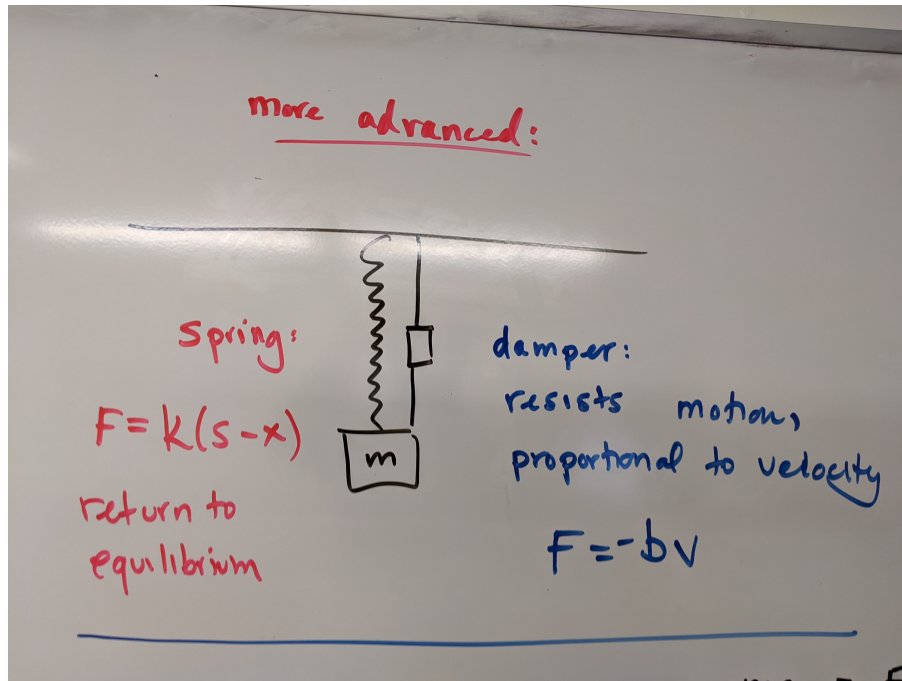 more advanced:
spring:
F=k(s-x)
return to
equilibrium
m
damper:
resists motion,
proportional to velocity
F=-bv